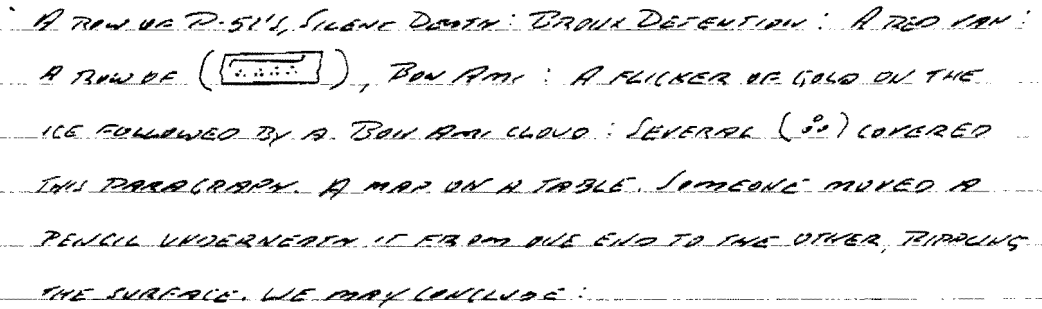 A ROW OF P-51'S, SILENT DEATH: BRONX DETENTION: A RED VAN:
A ROW OF ( ), BON AMI: A FLICKER OF GOLD ON THE
ICE FOLLOWED BY A BON AMI CLOUD: SEVERAL ( ) COVERED
THIS PARAGRAPH. A MAP ON A TABLE. SOMEONE MOVED A
PENCIL UNDERNEATH IT FROM ONE END TO THE OTHER, RIPPLING
THE SURFACE. WE MAY CONCLUDE: